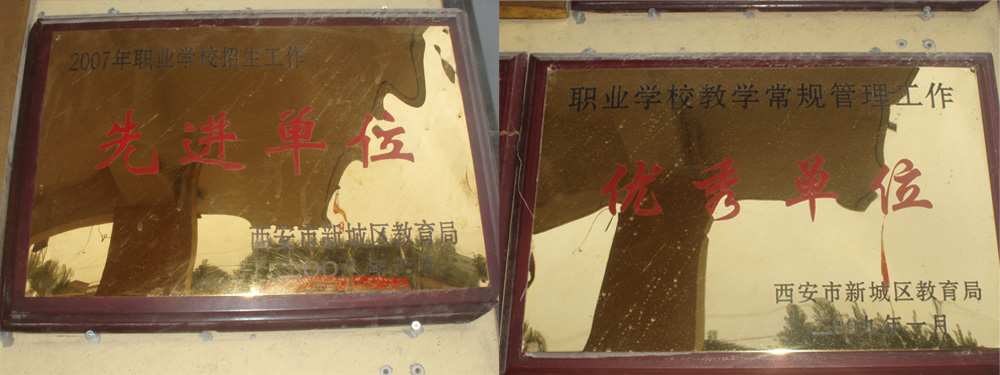 2007年职业学校招生工作
先进单位
西安市新城区教育局
职业学校教学常规管理工作
优秀单位
西安市新城区教育局
二00九年一月